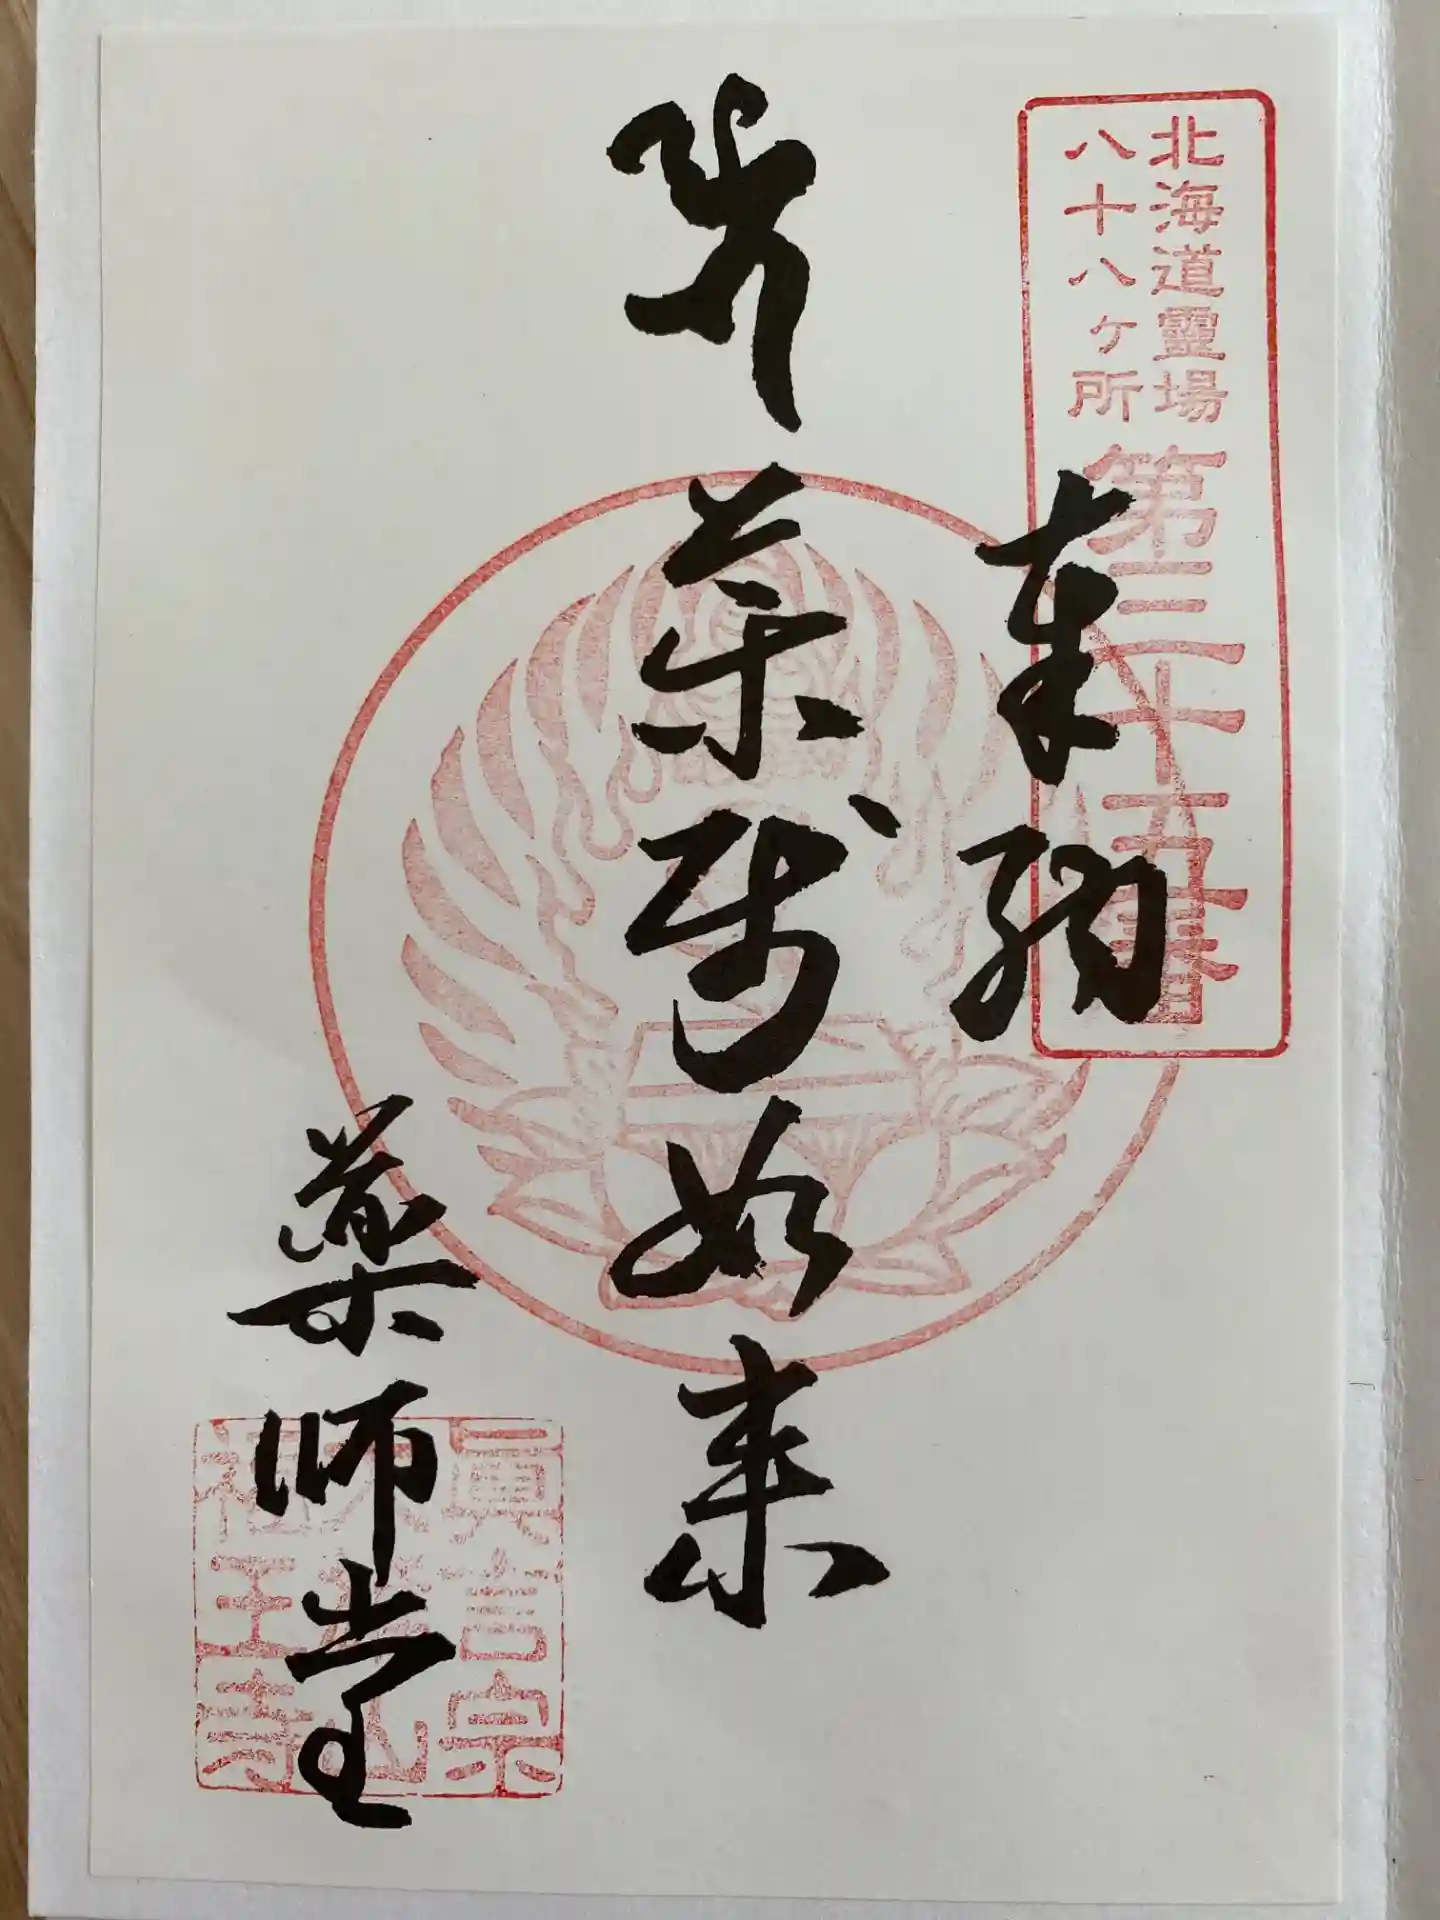 北海道靈場
八十八ヶ所
第三十五番
奉納
薬師如来
薬師堂
眞言宗